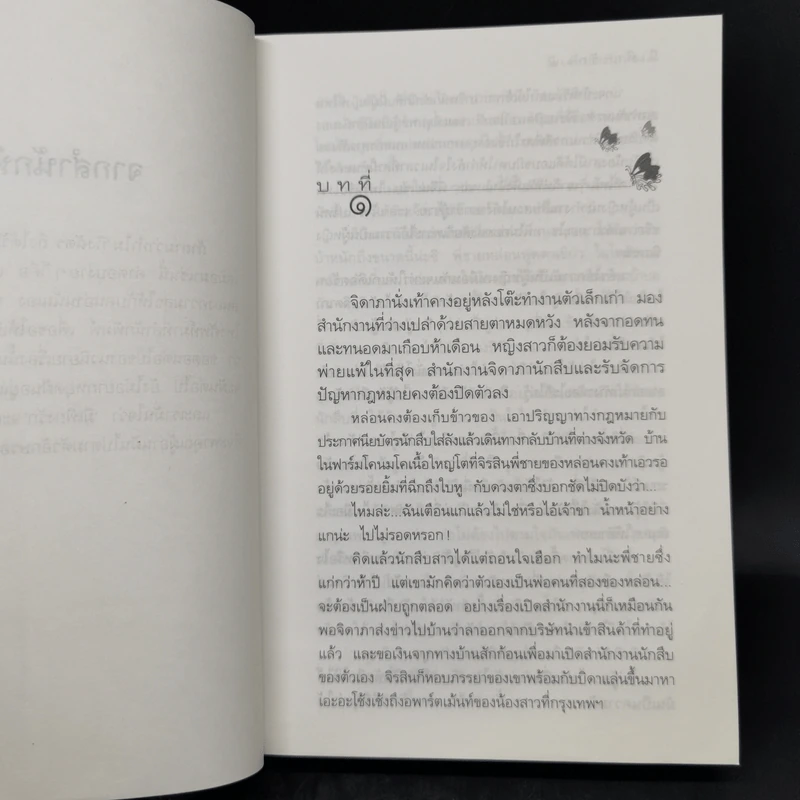 จากสำนัก
บทที่
๑
จิดาภานั่งเท้าคางอยู่หลังโต๊ะทำงานตัวเล็กเก่า มอง
สำนักงานที่ว่างเปล่าด้วยสายตาหมดหวัง หลังจากอดทน
และทนอดมาเกือบห้าเดือน หญิงสาวก็ต้องยอมรับความ
พ่ายแพ้ในที่สุด สำนักงานจิดาภานักสืบและรับจัดการ
ปัญหากฎหมายคงต้องปิดตัวลง
หล่อนคงต้องเก็บข้าวของ เอาปริญญาทางกฎหมายกับ
ประกาศนียบัตรนักสืบใส่ลังแล้วเดินทางกลับบ้านที่ต่างจังหวัด บ้าน
ในฟาร์มโคนมโคเนื้อใหญ่โตที่จิรสินพี่ชายของหล่อนคงเท้าเอวรอ
อยู่ด้วยรอยยิ้มที่ฉีกถึงใบหู กับดวงตาซึ่งบอกชัดไม่ปิดบังว่า...
ไหมล่ะ...ฉันเตือนแกแล้วไม่ใช่หรือไอ้เจ้าขา น้ำหน้าอย่าง
แกน่ะ ไปไม่รอดหรอก!
คิดแล้วนักสืบสาวได้แต่ถอนใจเฮือก ทำไมนะพี่ชายซึ่ง
แก่กว่าห้าปี แต่เขามักคิดว่าตัวเองเป็นพ่อคนที่สองของหล่อน...
จะต้องเป็นฝ่ายถูกตลอด อย่างเรื่องเปิดสำนักงานนี่ก็เหมือนกัน
พอจิดาภาส่งข่าวไปบ้านว่าลาออกจากบริษัทนำเข้าสินค้าที่ทำอยู่
แล้ว และขอเงินจากทางบ้านสักก้อนเพื่อมาเปิดสำนักงานนักสืบ
ของตัวเอง จิรสินก็หอบภรรยาของเขาพร้อมกับบิดาแล่นขึ้นมาหา
เอะอะโช้งเช้งถึงอพาร์ตเม้นท์ของน้องสาวที่กรุงเทพฯ